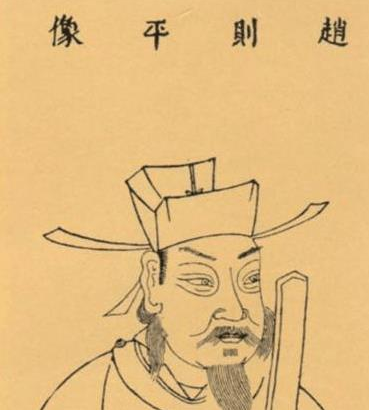 趙則平像